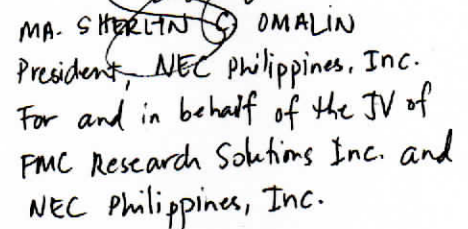 MA. SHERLYN C. OMALIN
President, NEC Philippines, Inc.
For and in behalf of the JV of
FMC Research Solutions Inc. and
NEC Philippines, Inc.